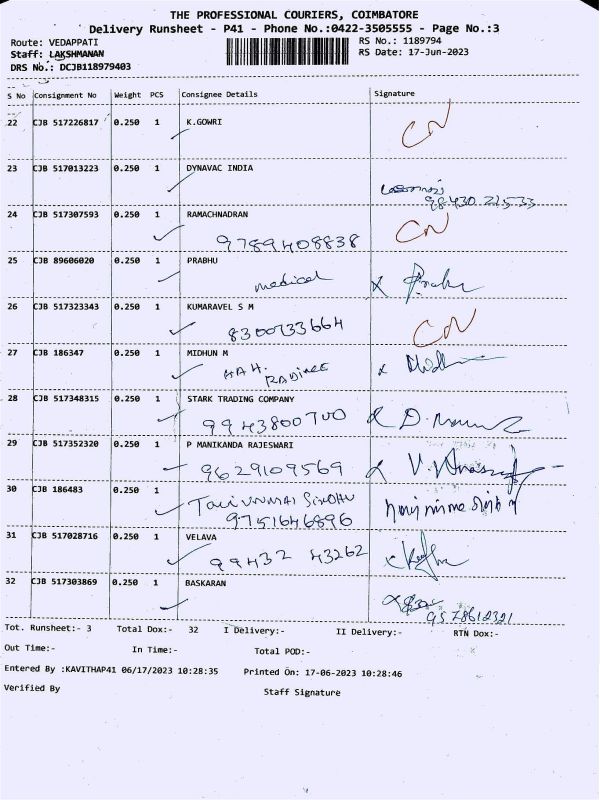 THE PROFESSIONAL COURIERS, COIMBATORE
Delivery Runsheet - P41 - Phone No.:0422-3505555 - Page No.:3
Route: VEDAPPATI
RS No.: 1189794
Staff: LAKSHMANAN
RS Date: 17-Jun-2023
DRS No.: DCJB118979403
S No Consignment No Weight PCS Consignee Details Signature
22 CJB 517226817 0.250 1 K.GOWRI CN
23 CJB 517013223 0.250 1 DYNAVAC INDIA
98430 21533
24 CJB 517307593 0.250 1 RAMACHNADRAN CN
9789408838
25 CJB 89606020 0.250 1 PRABHU
medical
26 CJB 517323343 0.250 1 KUMARAVEL S M CN
8300733664
27 CJB 186347 0.250 1 MIDHUN M
28 CJB 517348315 0.250 1 STARK TRADING COMPANY
9943800700
29 CJB 517352320 0.250 1 P MANIKANDA RAJESWARI
9629109569
30 CJB 186483 0.250 1
9751646896
31 CJB 517028716 0.250 1 VELAVA
99432 43262
32 CJB 517303869 0.250 1 BASKARAN
9578612321
Tot. Runsheet:- 3 Total Dox:- 32 I Delivery:- II Delivery:- RTN Dox:-
Out Time:- In Time:- Total POD:-
Entered By :KAVITHAP41 06/17/2023 10:28:35 Printed On: 17-06-2023 10:28:46
Verified By Staff Signature